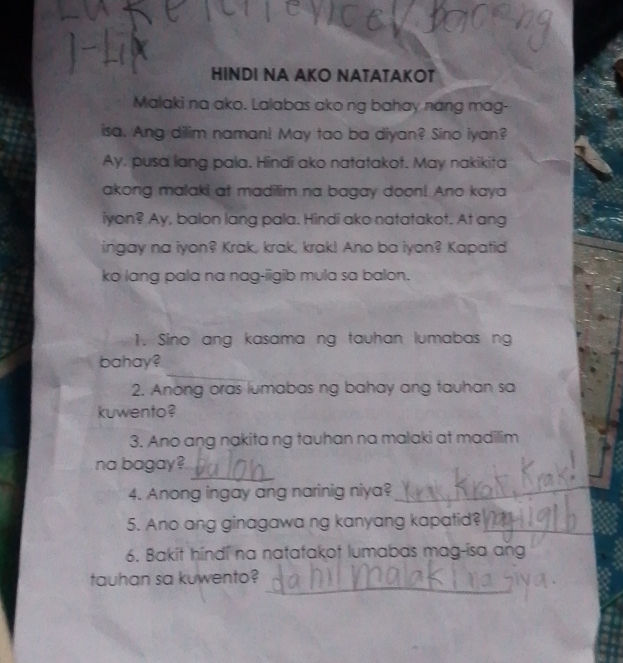 1-Lix
HINDI NA AKO NATATAKOT
Malaki na ako. Lalabas ako ng bahay nang mag-
isa. Ang dilim naman! May tao ba diyan? Sino iyan?
Ay, pusa lang pala. Hindi ako natatakot. May nakikita
akong malaki at madilim na bagay doon! Ano kaya
iyon? Ay, balon lang pala. Hindi ako natatakot. At ang
ingay na iyon? Krak, krak, krak! Ano ba iyon? Kapatid
ko lang pala na nag-iigib mula sa balon.
1. Sino ang kasama ng tauhan lumabas ng
bahay?
2. Anong oras lumabas ng bahay ang tauhan sa
kuwento?
3. Ano ang nakita ng tauhan na malaki at madilim
na bagay? balon
4. Anong ingay ang narinig niya? Krak, Krak, Krak!
5. Ano ang ginagawa ng kanyang kapatid? nag-iigib
6. Bakit hindi na natatakot lumabas mag-isa ang
tauhan sa kuwento? dahil malaki na siya.